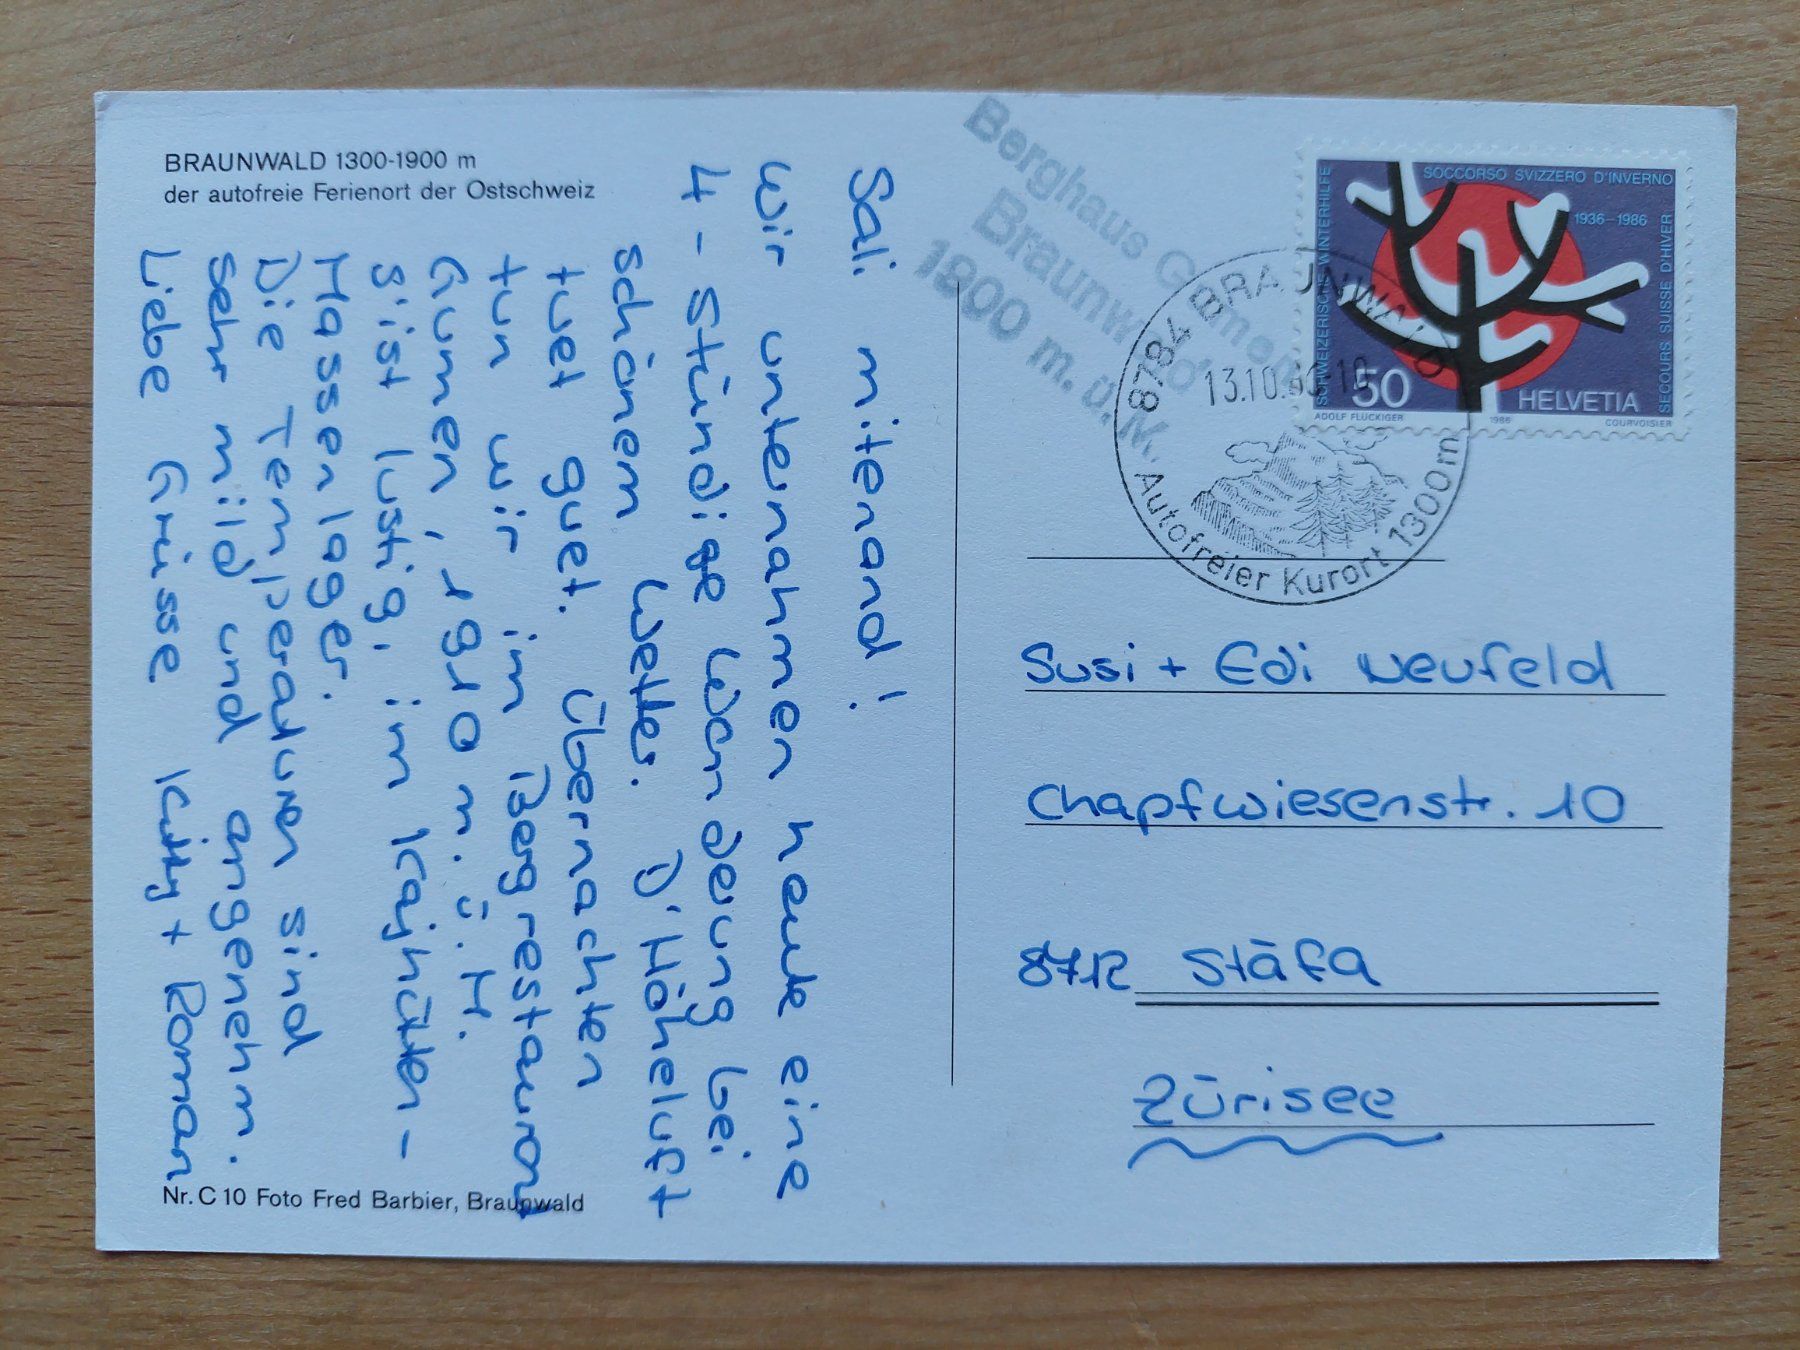 BRAUNWALD 1300-1900 m
der autofreie Ferienort der Ostschweiz
Sali mitenand!
Wir unternahmen heute eine
4-stündige Wanderung bei
schönem Wetter. D'Höheluft
tuet guet. Übernachten
tun wir im Bergrestaurant
Gumen, 1910 m.ü.M.
S'ist lustig, im Kajhütten-
Massenlager.
Die Temperaturen sind
sehr mild und angenehm.
Liebe Grüsse Kitty + Roman
Nr. C 10 Foto Fred Barbier, Braunwald
Berghaus Gumen
Braunwald
1900 m. ü. M.
8784 BRAUNWALD
13.10.86-10
Autofreier Kurort 1300 m
SCHWEIZERISCHE WINTERHILFE
SOCCORSO SVIZZERO D'INVERNO
1936-1986
SECOURS SUISSE D'HIVER
50
HELVETIA
ADOLF FLÜCKIGER
1986
COURVOISIER
Susi + Edi Neufeld
Chapfwiesenstr. 10
8712 Stäfa
Zürisee